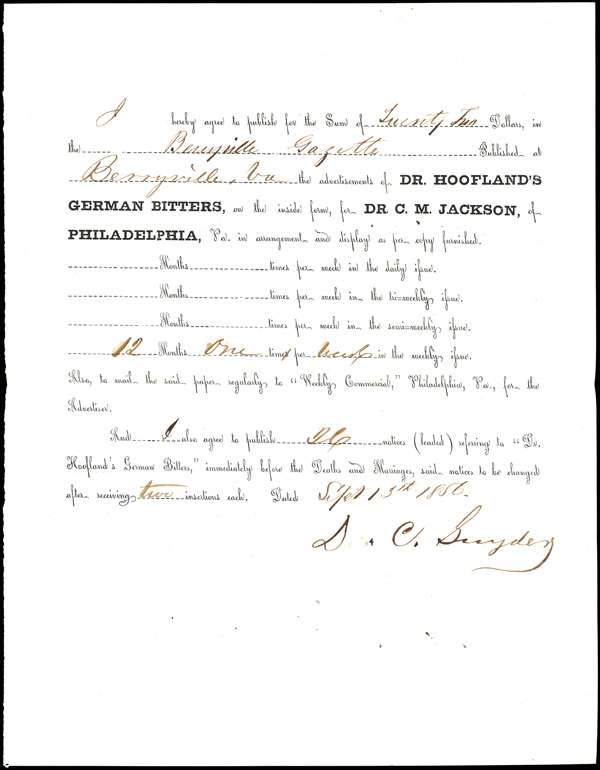 I hereby agree to publish for the Sum of Twenty Two Dollars, in
the Berryville Gazette Published at
Berryville, Va the advertisements of DR. HOOFLAND'S
GERMAN BITTERS, on the inside form, for DR. C. M. JACKSON, of
PHILADELPHIA, Pa. in arrangement and display as per copy furnished.
Months times per week in the daily issue.
Months times per week in the tri=weekly issue.
Months times per week in the semi=weekly issue.
12 Months One time per week in the weekly issue.
Also, to mail the said paper regularly to "Weekly Commercial," Philadelphia, Pa., for the
Advertiser.
And I also agree to publish notices (leaded) referring to "Dr.
Hoofland's German Bitters," immediately before the Deaths and Marriages, said notices to be changed
after receiving two insertions each. Dated Sept 13th 1856.
D. C. Snyder